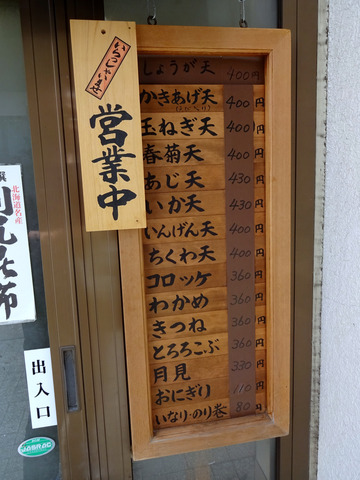 いらっしゃいませ
営業中
しょうが天 400円
かきあげ天 400円
玉ねぎ天 400円
春菊天 400円
あじ天 430円
いか天 430円
いんげん天 400円
ちくわ天 400円
コロッケ 360円
わかめ 360円
きつね 360円
とろろこぶ 360円
月見 330円
おにぎり 110円
いなり・のり巻 80円
北海道名産
出入口
JASRAC